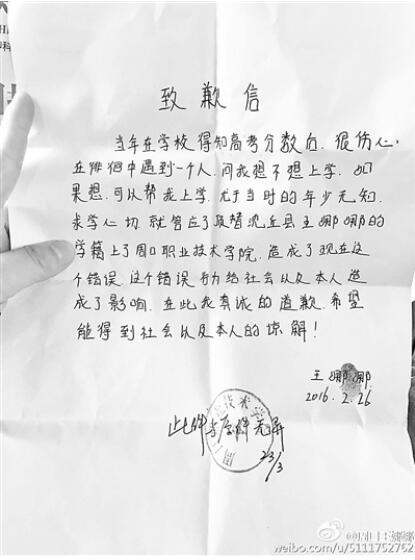 致歉信
当年在学校得知高考分数后.很伤心.
在徘徊中遇到一个人.问我想不想上学.如
果想.可以帮我上学.尤于当时的年少无知.
求学心切.就答应了.顶替沈丘县王娜娜的
学籍上了周口职业技术学院.造成了现在这
个错误.这个错误行为给社会以及本人造
成了影响.在此我真诚的道歉.希望
能得到社会以及本人的谅解!
王娜娜.
2016.2.26
此件与原件无异
23/3
weibo.com/u/5111752752